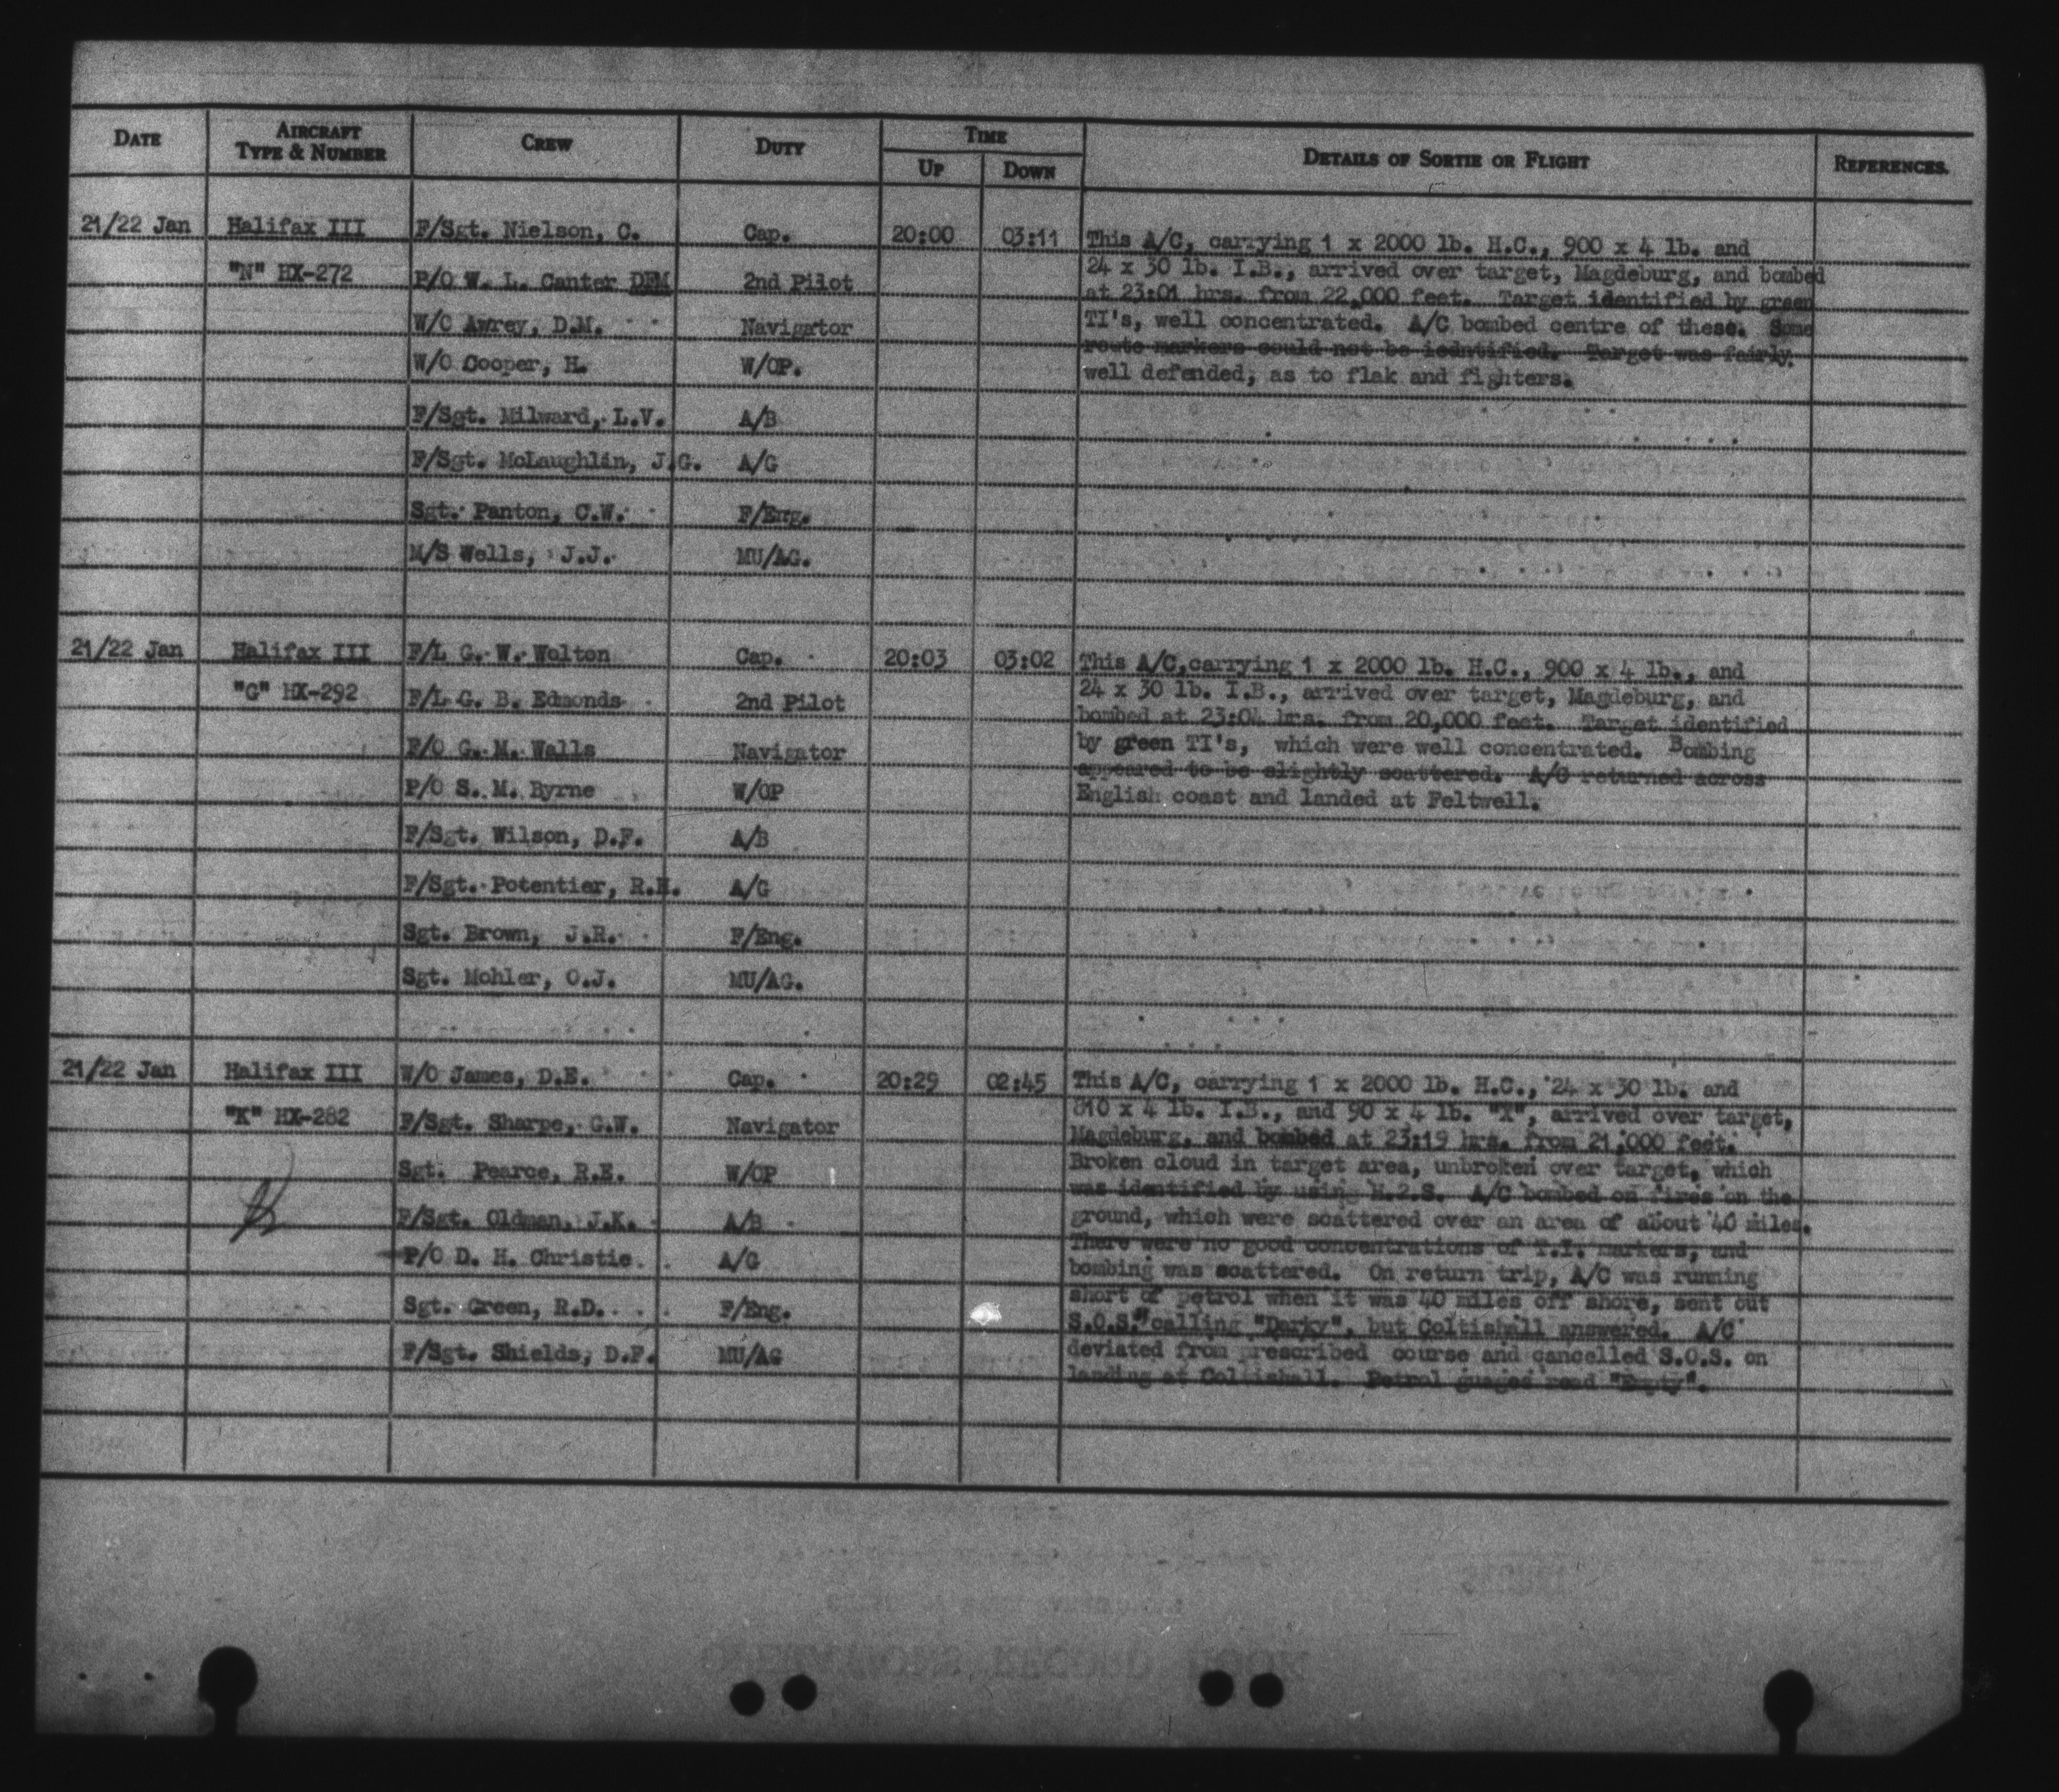 DATE AIRCRAFT TYPE & NUMBER CREW DUTY TIME UP DOWN DETAILS OF SORTIE OR FLIGHT REFERENCES.
21/22 Jan Halifax III F/Sgt. Nielson, C. Cap. 20:00 03:11 This A/C, carrying 1 x 2000 lb. H.C., 900 x 4 lb. and
"N" HX-272 P/O W. L. Canter DFM 2nd Pilot 24 x 30 lb. I.B., arrived over target, Magdeburg, and bombed
at 23:01 hrs. from 22,000 feet. Target identified by green
W/O Awrey, D.M. Navigator TI's, well concentrated. A/C bombed centre of these. Some
route markers could not be iedntified. Target was fairly
W/O Cooper, H. W/OP. well defended, as to flak and fighters.
F/Sgt. Milward, L.V. A/B
F/Sgt. McLaughlin, J.G. A/G
Sgt. Panton, C.W. F/Eng.
M/S Wells, J.J. MU/AG.
21/22 Jan Halifax III F/L G. W. Wolton Cap. 20:03 03:02 This A/C,carrying 1 x 2000 lb. H.C., 900 x 4 lb., and
"G" HX-292 F/L G. B. Edmonds 2nd Pilot 24 x 30 lb. I.B., arrived over target, Magdeburg, and
bombed at 23:04 hrs. from 20,000 feet. Target identified
F/O G. M. Walls Navigator by green TI's, which were well concentrated. Bombing
appeared to be slightly scattered. A/C returned across
P/O S. M. Byrne W/OP English coast and landed at Feltwell.
F/Sgt. Wilson, D.F. A/B
F/Sgt. Potentier, R.H. A/G
Sgt. Brown, J.R. F/Eng.
Sgt. Mohler, O.J. MU/AG.
21/22 Jan Halifax III W/O James, D.E. Cap. 20:29 02:45 This A/C, carrying 1 x 2000 lb. H.C., 24 x 30 lb. and
"K" HX-282 F/Sgt. Sharpe, G.W. Navigator 810 x 4 lb. I.B., and 90 x 4 lb. "X", arrived over target,
Magdeburg, and bombed at 23:19 hrs. from 21,000 feet.
Sgt. Pearce, R.E. W/OP Broken cloud in target area, unbroken over target, which
was identified by using H.2.S. A/C bombed on fires on the
F/Sgt. Oldman, J.K. A/B ground, which were scattered over an area of about 40 miles.
There were no good concentrations of T.I. markers, and
P/O D. H. Christie A/G bombing was scattered. On return trip, A/C was running
short of petrol when it was 40 miles off shore, sent out
Sgt. Green, R.D. F/Eng. S.O.S. calling "Darky", but Coltishall answered. A/C
F/Sgt. Shields, D.F. MU/AG deviated from prescribed course and cancelled S.O.S. on
landing at Coltishall. Petrol guages read "Empty".